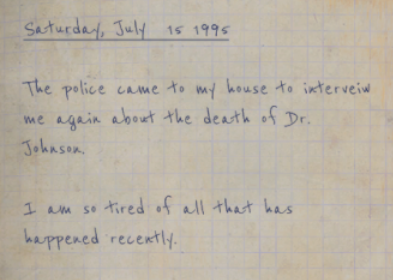 Saturday, July 15 1995
The police came to my house to interveiw
me again about the death of Dr.
Johnson.
I am so tired of all that has
happened recently.